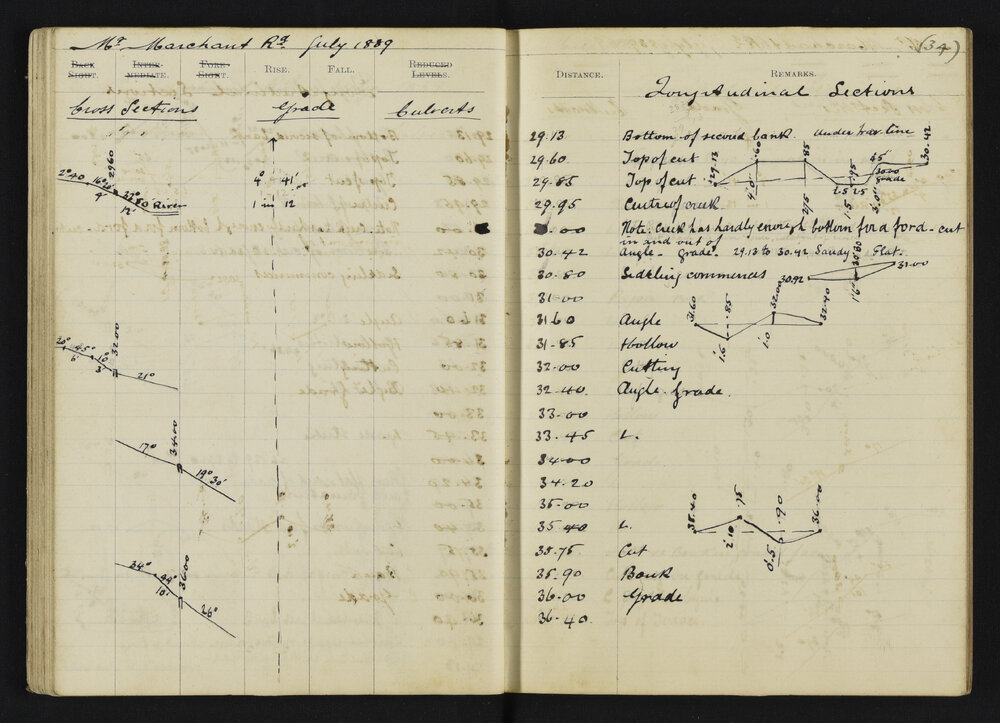 Mt Marchant Rd July 1889
BACK SIGHT. INTER-MEDIATE. FORE-SIGHT. RISE. FALL. REDUCED LEVELS.
Cross Sections Grade Culverts
2960
2° 40
4°
12'
27° 80 River
4° 41'
1 in 12
20° 45° 10°
6' 3'
32.00
21°
17°
34.00
19° 30'
34° 49°
10'
36.00
26°
(34)
DISTANCE. REMARKS.
Longitudinal Sections
29.13 Bottom of second bank. under trav line
29.60 Top of cut
29.85 Top of cut
29.95 Centre of creek
.00 Note. Creek has hardly enough bottom for a ford - cut
in and out of
30.42 Angle - grade. 29.13 to 30.42 Sandy Flat.
30.80 Sidling commences
31.00
31.60 Angle
31.85 Hollow
32.00 Cutting
32.40 Angle. Grade.
33.00
33.45 L.
34.00
34.20
35.00
35.40 L.
35.75 Cut
35.90 Bank
36.00 Grade
36.40.
29.13 .60 .85 .95 45 30.42
4.0 2/5 25 25 1.5 3.0
30.00
grade
30.42 30.80 31.00
1.6
31.60 .85 32.00 32.40
1.5 1.0
35.40 .75 .90 36.00
2.10 0.5